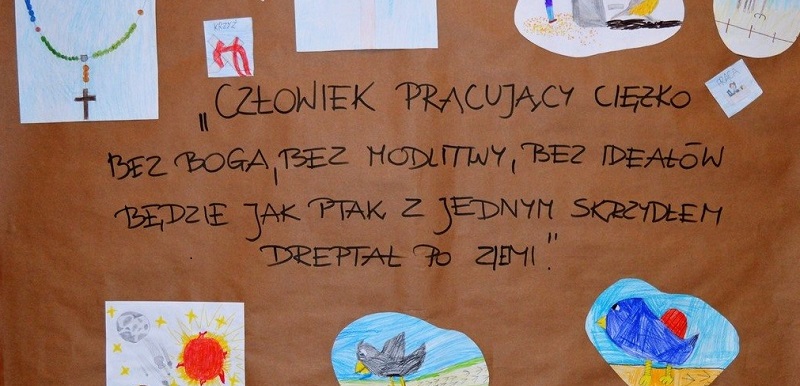 KRZYŻ
„CZŁOWIEK PRACUJĄCY CIĘŻKO
BEZ BOGA, BEZ MODLITWY, BEZ IDEAŁÓW
BĘDZIE JAK PTAK Z JEDNYM SKRZYDŁEM
DREPTAŁ PO ZIEMI."